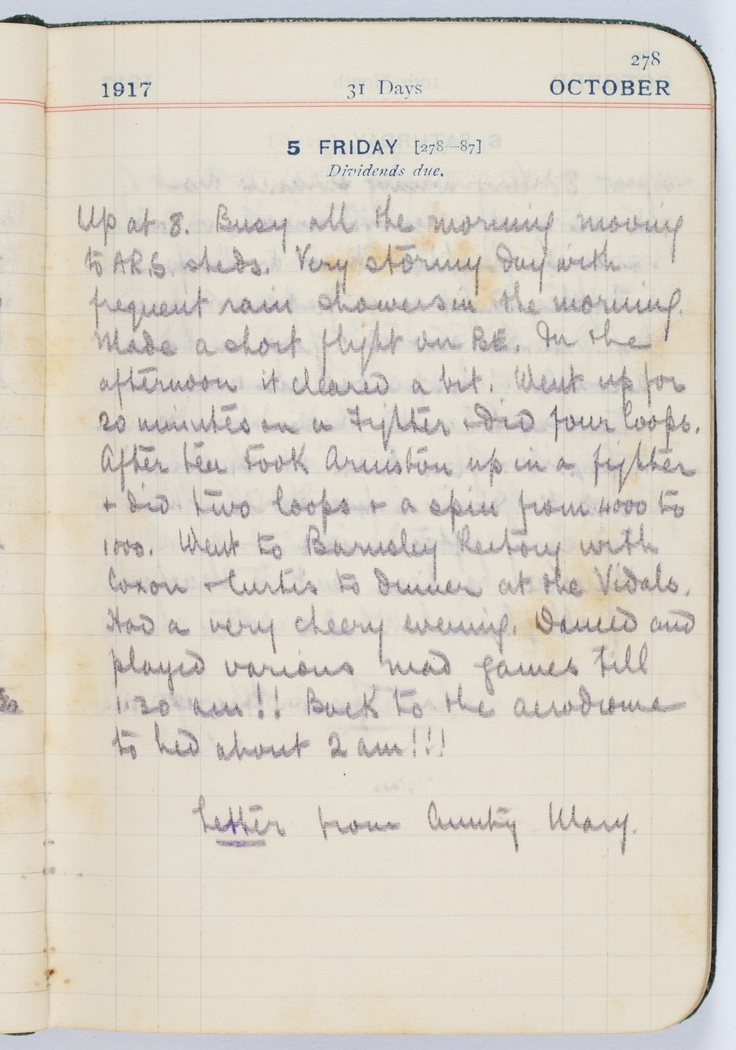 278
1917 31 Days OCTOBER
5 FRIDAY [278—87]
Dividends due.
Up at 8. Busy all the morning moving
to ARS sheds. Very stormy day with
frequent rain showers in the morning.
Made a short flight on BE. In the
afternoon it cleared a bit. Went up for
20 minutes on a Fighter & did four loops.
After tea took Armiston up in a fighter
+ did two loops + a spin from 4000 to
1000. Went to Barnsley Rectory with
Coxon & Curtis to dinner at the Vidals.
Had a very cheery evening. Danced and
played various mad games till
1.30 am!! Back to the aerodrome
to bed about 2 am!!!
Letter from Aunty Mary.